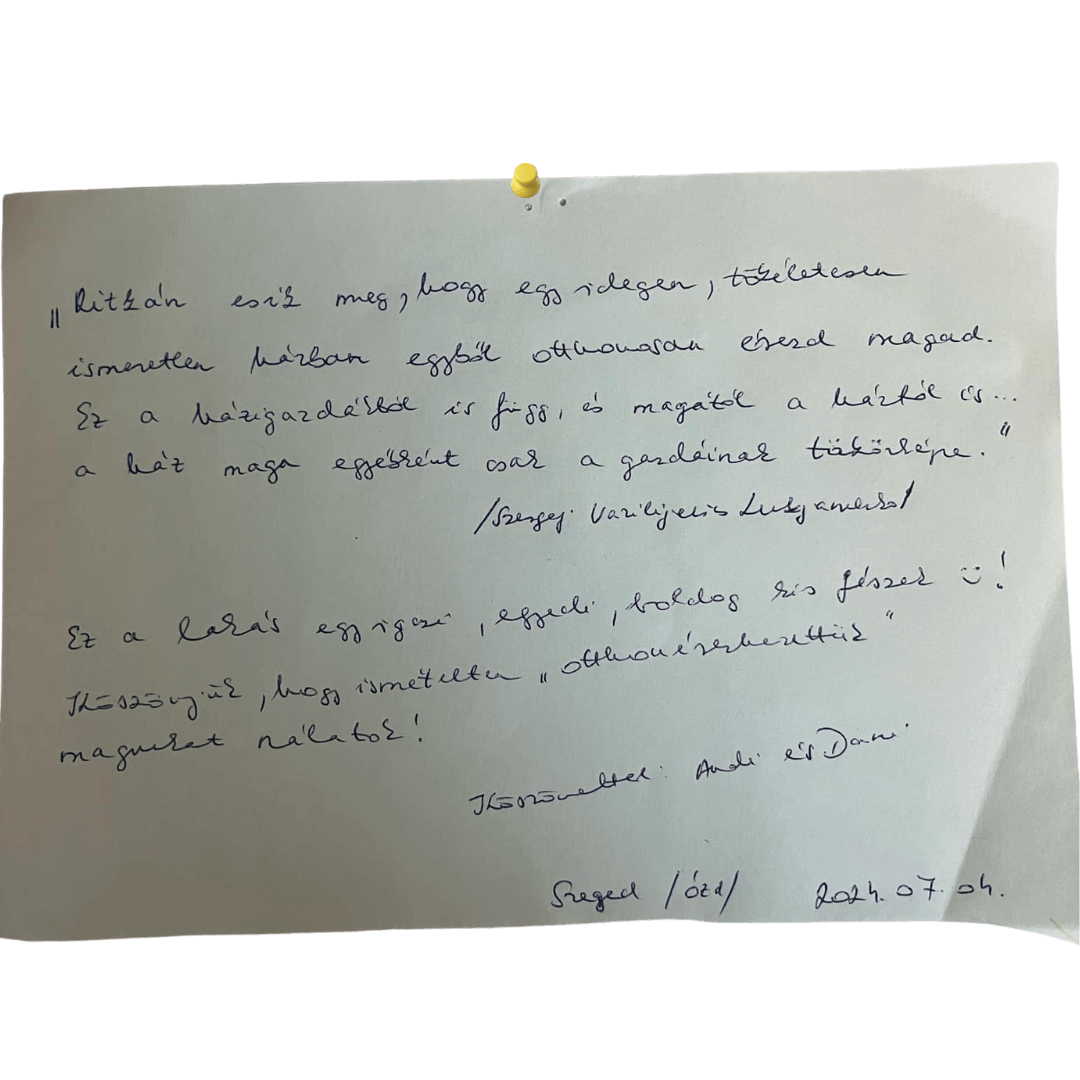 „Ritkán esik meg, hogy egy idegen, tökéletesen
ismeretlen házban egyből otthonosan érezd magad.
Ez a házigazdáktól is függ, és magától a háztól is...
a ház maga egyébként csak a gazdáinak tükörképe."
/Szergej Vaszilijevics Lukjanenko/
Ez a lakás egy igazi, egyedi, boldog kis fészek :)!
Köszönjük, hogy ismételten „otthonérezhettük"
magunkat nálatok!
Köszönettel: Andi és Dani
Szeged /Ózd/ 2024.07.04.